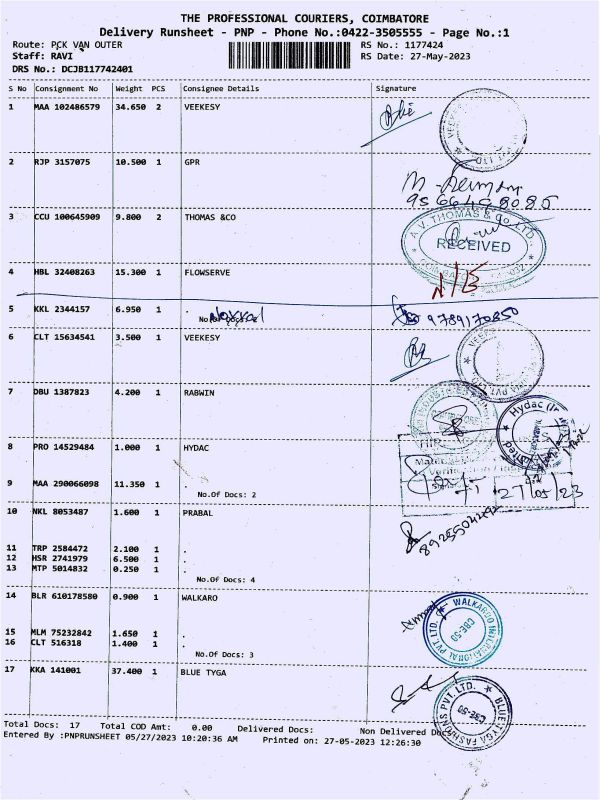 THE PROFESSIONAL COURIERS, COIMBATORE
Delivery Runsheet - PNP - Phone No.:0422-3505555 - Page No.:1
Route: PCK VAN OUTER RS No.: 1177424
Staff: RAVI RS Date: 27-May-2023
DRS No.: DCJB117742401
S No Consignment No Weight PCS Consignee Details Signature
1 MAA 102486579 34.650 2 VEEKESY
2 RJP 3157075 10.500 1 GPR
3 CCU 100645909 9.800 2 THOMAS &CO
A.V. THOMAS & CO. LTD.
RECEIVED
4 HBL 32408263 15.300 1 FLOWSERVE
5 KKL 2344157 6.950 1 .
9789170850
6 CLT 15634541 3.500 1 VEEKESY
7 DBU 1387823 4.200 1 RABWIN
8 PRO 14529484 1.000 1 HYDAC
Hydac
9 MAA 290066098 11.350 1 .
No.Of Docs: 2
27/05/23
10 NKL 8053487 1.600 1 PRABAL
11 TRP 2584472 2.100 1 .
12 HSR 2741979 6.500 1 .
13 MTP 5014832 0.250 1 .
No.Of Docs: 4
14 BLR 610178580 0.900 1 WALKARO
WALKAROO INTERNATIONAL PVT. LTD.
CBE-50
15 MLM 75232842 1.650 1 .
16 CLT 516318 1.400 1 .
No.Of Docs: 3
17 KKA 141001 37.400 1 BLUE TYGA
BLUE TYGA FASHIONS PVT. LTD.
CBE-50
Total Docs: 17 Total COD Amt: 0.00 Delivered Docs: Non Delivered Docs
Entered By :PNPRUNSHEET 05/27/2023 10:20:36 AM Printed on: 27-05-2023 12:26:30